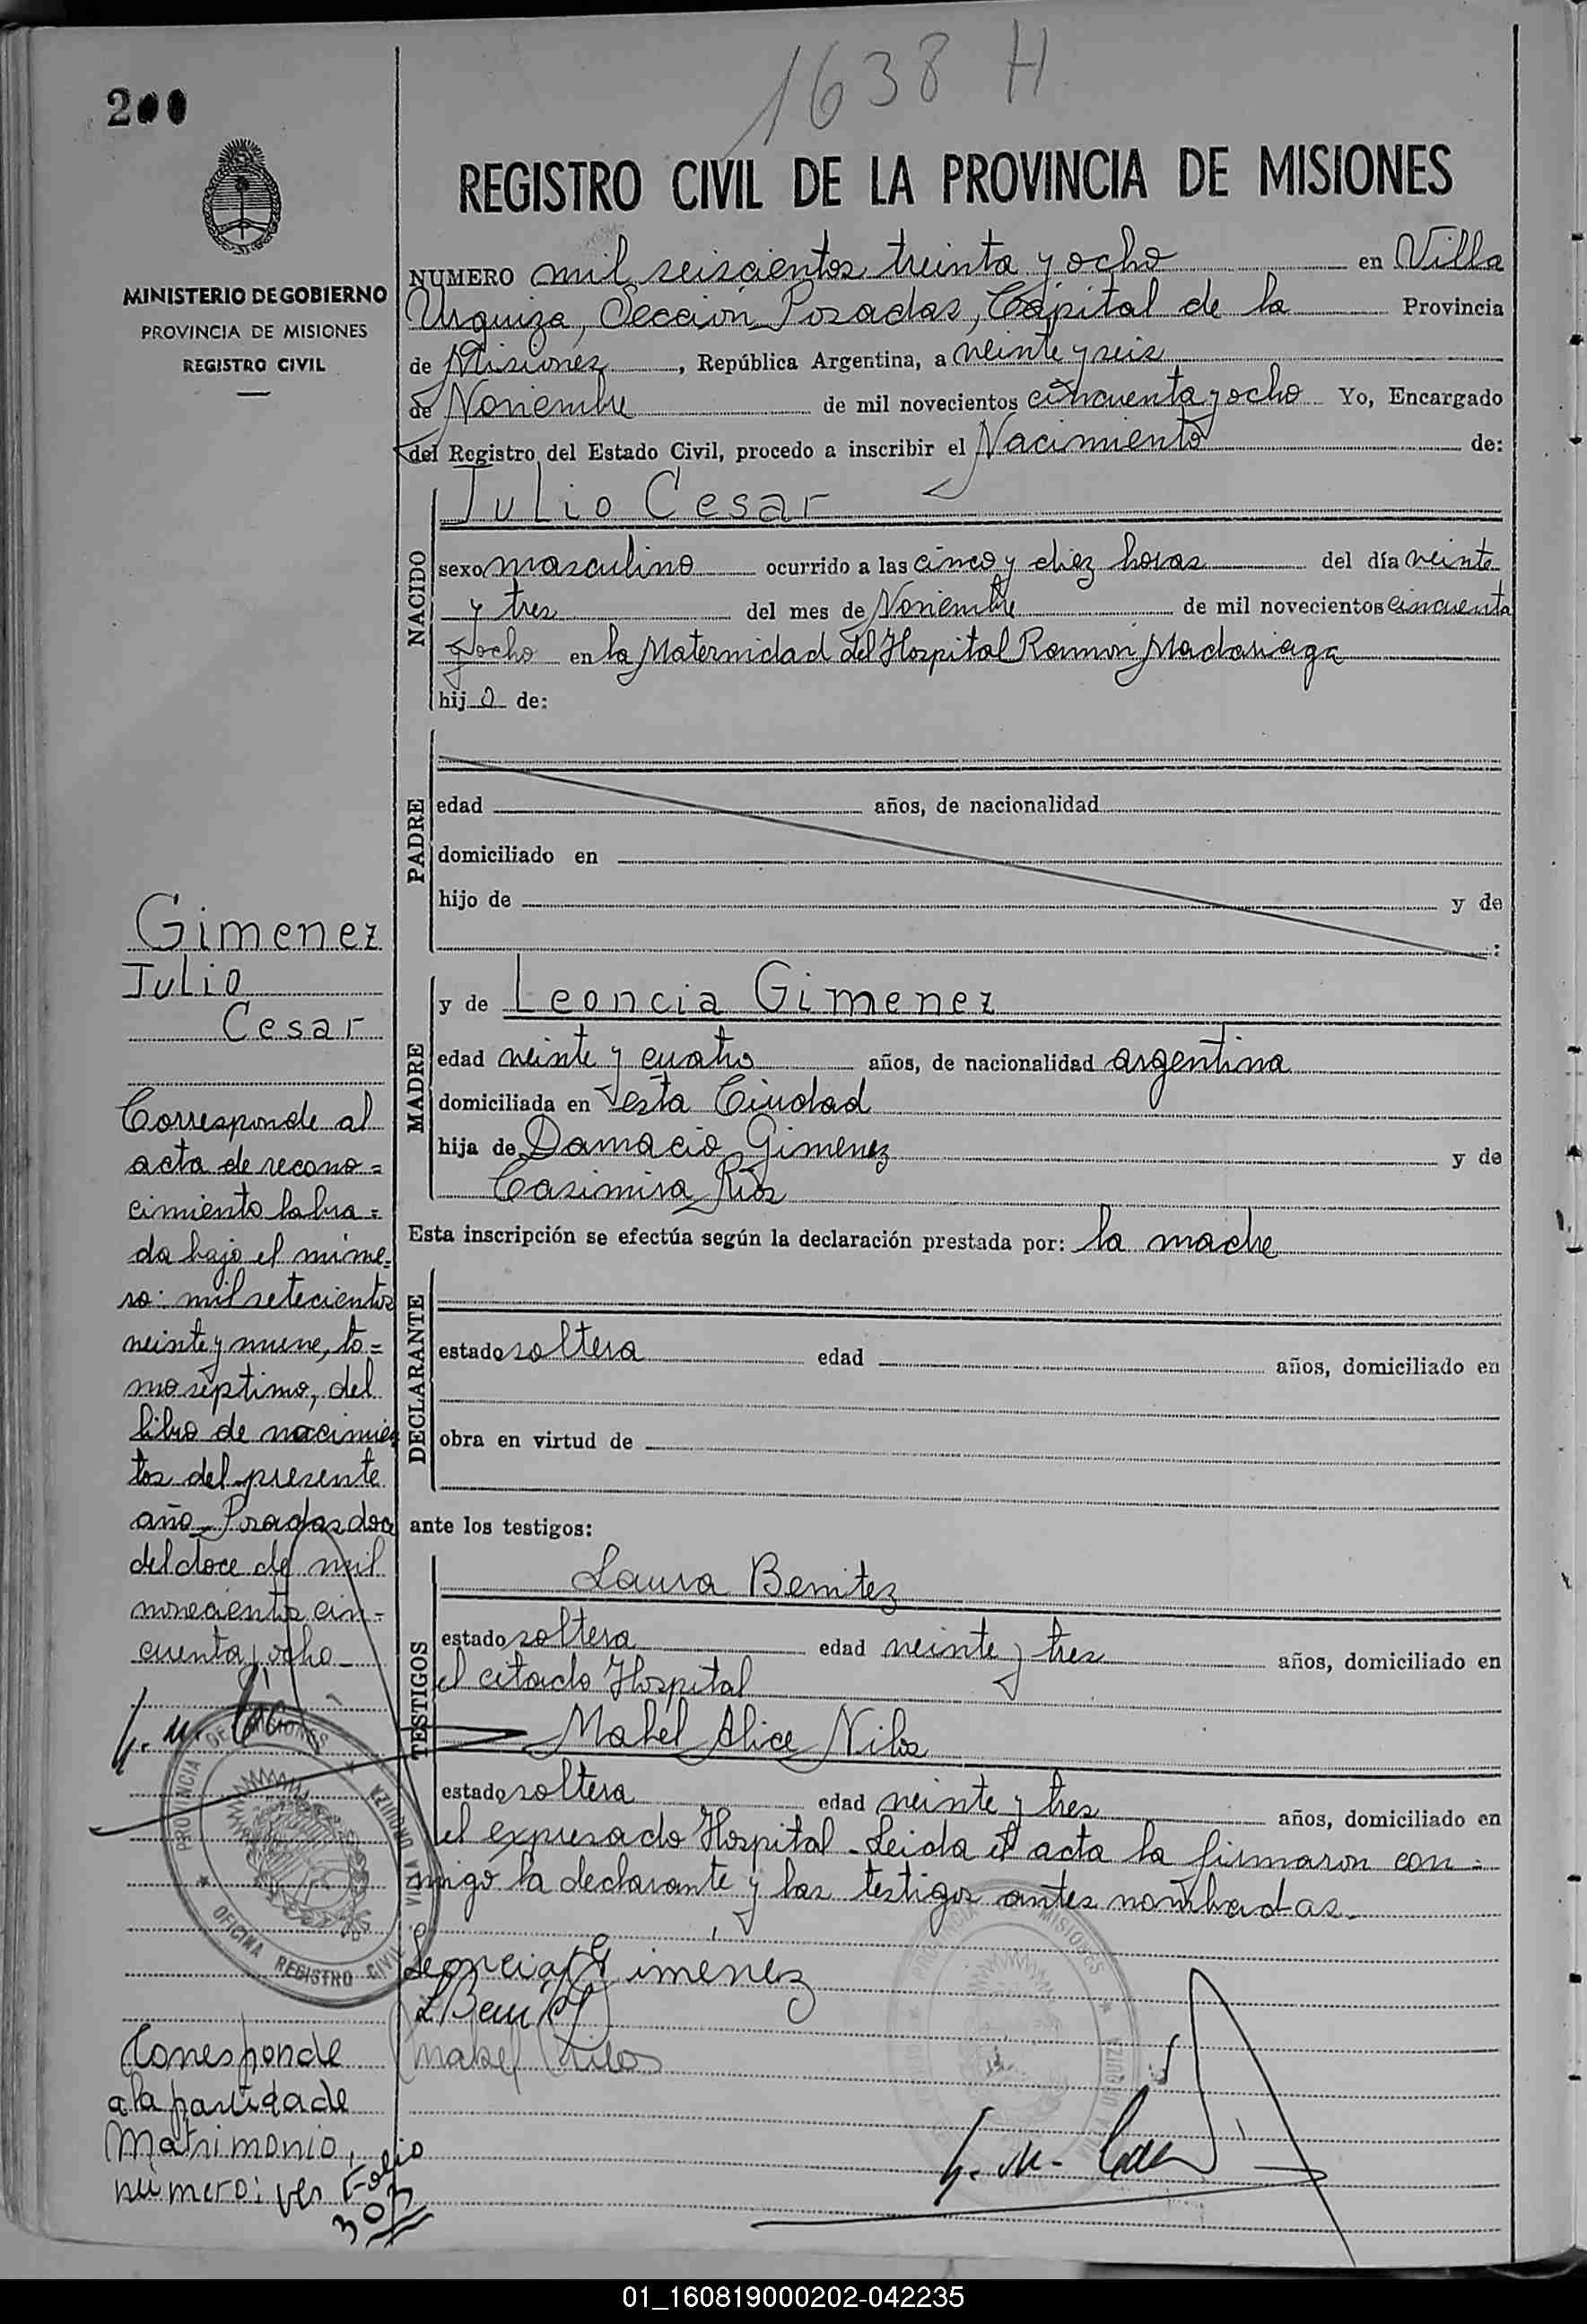 1638 H
200
REGISTRO CIVIL DE LA PROVINCIA DE MISIONES
MINISTERIO DE GOBIERNO
PROVINCIA DE MISIONES
REGISTRO CIVIL
NUMERO mil seiscientos treinta y ocho en Villa
Urquiza, Sección Posadas, Capital de la Provincia
de Misiones, República Argentina, a veinte y seis
de Noviembre de mil novecientos cincuenta y ocho Yo, Encargado
del Registro del Estado Civil, procedo a inscribir el Nacimiento de:
NACIDO
Julio Cesar
sexo masculino ocurrido a las cinco y diez horas del día veinte
y tres del mes de Noviembre de mil novecientos cincuenta
y ocho en la Maternidad del Hospital Ramón Madariaga
hijo de:
PADRE
edad años, de nacionalidad
domiciliado en
hijo de y de
:
MADRE
y de Leoncia Gimenez
edad veinte y cuatro años, de nacionalidad argentina
domiciliada en esta Ciudad
hija de Damacio Gimenez y de
Casimira Ríos
Esta inscripción se efectúa según la declaración prestada por: la madre
DECLARANTE
estado soltera edad años, domiciliado en
obra en virtud de
ante los testigos:
TESTIGOS
Laura Benitez
estado soltera edad veinte y tres años, domiciliado en
el citado Hospital
Mabel Alice Nilos
estado soltera edad veinte y tres años, domiciliado en
el expresado Hospital - Leida el acta la firmaron con=
migo la declarante y las testigos antes nombradas.-
Leoncia Gimenez
L Benitez
Mabel Nilos
Gimenez
Julio
Cesar
Corresponde al
acta de recono=
cimiento labra=
da bajo el núme-
ro: mil setecientos
veinte y nueve, to=
mo séptimo, del
libro de nacimien
tos del presente
año - Posadas doce
del doce de mil
novecientos cin-
cuenta y ocho -
PROVINCIA DE MISIONES
OFICINA REGISTRO CIVIL
VILLA URQUIZA
Corresponde
a la partida de
Matrimonio,
número: ver Folio
303
PROVINCIA MISIONES
VILLA URQUIZA
01_160819000202-042235